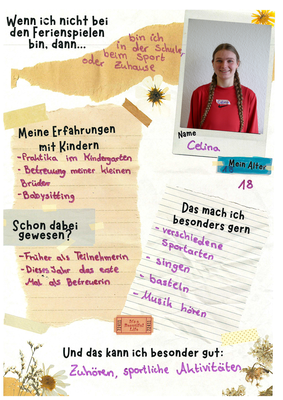 Wenn ich nicht bei
den Ferienspielen
bin, dann...
bin ich
in der Schule,
beim Sport
oder Zuhause
Name
Celina
Mein Alter
18
Meine Erfahrungen
mit Kindern
- Praktika im Kindergarten
- Betreuung meiner kleinen
Brüder
- Babysitting
Das mach ich
besonders gern
- verschiedene
Sportarten
- singen
- basteln
- Musik hören
Schon dabei
gewesen?
- Früher als Teilnehmerin
- Dieses Jahr das erste
Mal als Betreuerin
Und das kann ich besonder gut:
Zuhören, sportliche Aktivitäten